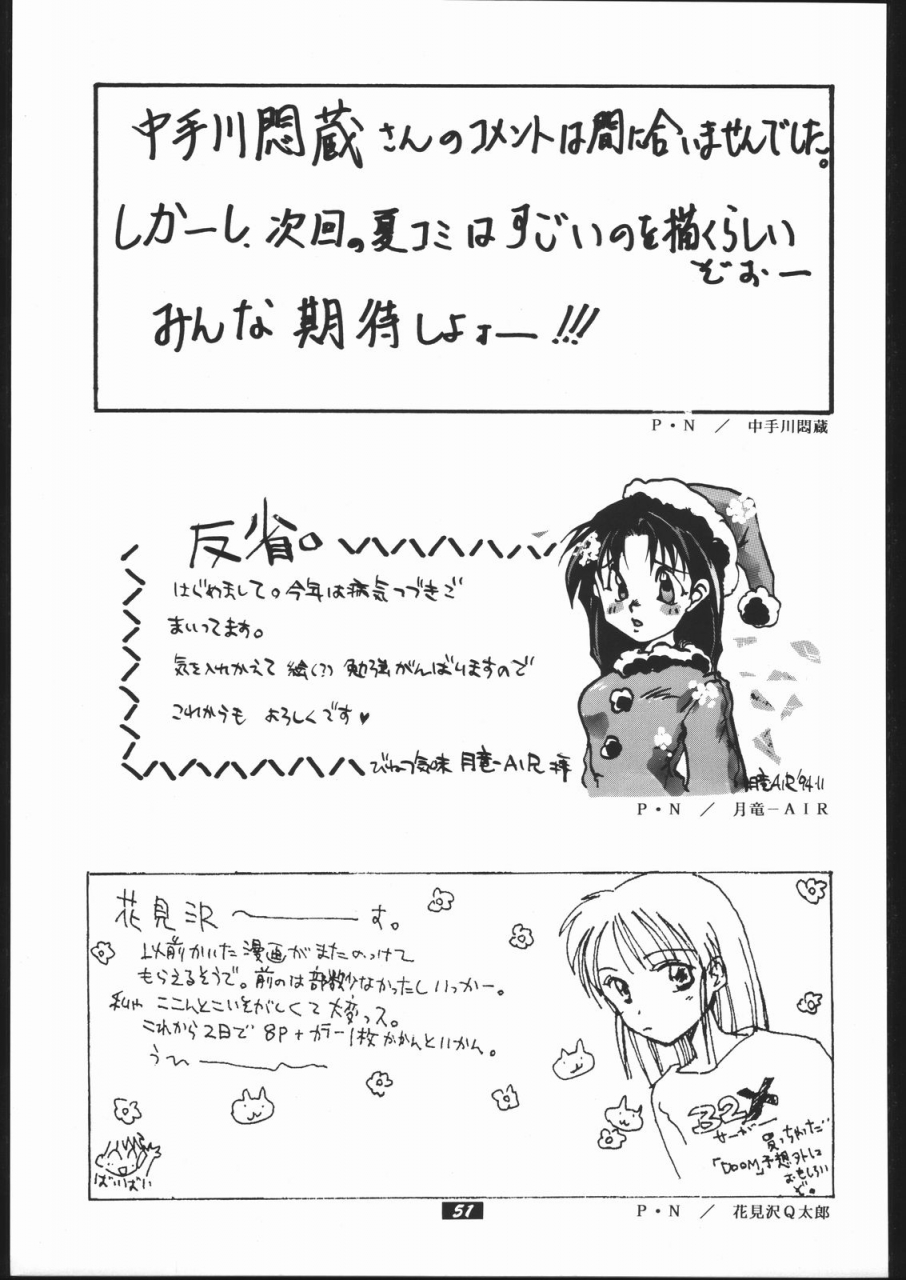 中手川悶蔵さんのコメントは間に合いませんでした。
しかーし、次回。夏コミはすごいのを描くらしい
ぞおー
みんな期待しよォー!!!
P・N ／ 中手川悶蔵
反省。
はじめまして。今年は病気つづきで
まいってます。
気を入れかえて 絵(?) 勉強がんばりますので
これからも よろしくです♥
びねつ気味 月竜-AIR 拝
月竜AIR'94.11
P・N ／ 月竜－AIR
花見沢～す。
以前かいた漫画がまたのっけて
もらえるそうで。前のは部数少なかったしいっかー。
私ゃ ここんとこいそがしくて大変っス。
これから2日で 8P+カラー1枚かかんといかん。
うー
32X
サーガー
買っちゃった
「DOOM」予想外に
おもしろい
ぞ。
ばいばい
51
P・N ／ 花見沢Q太郎